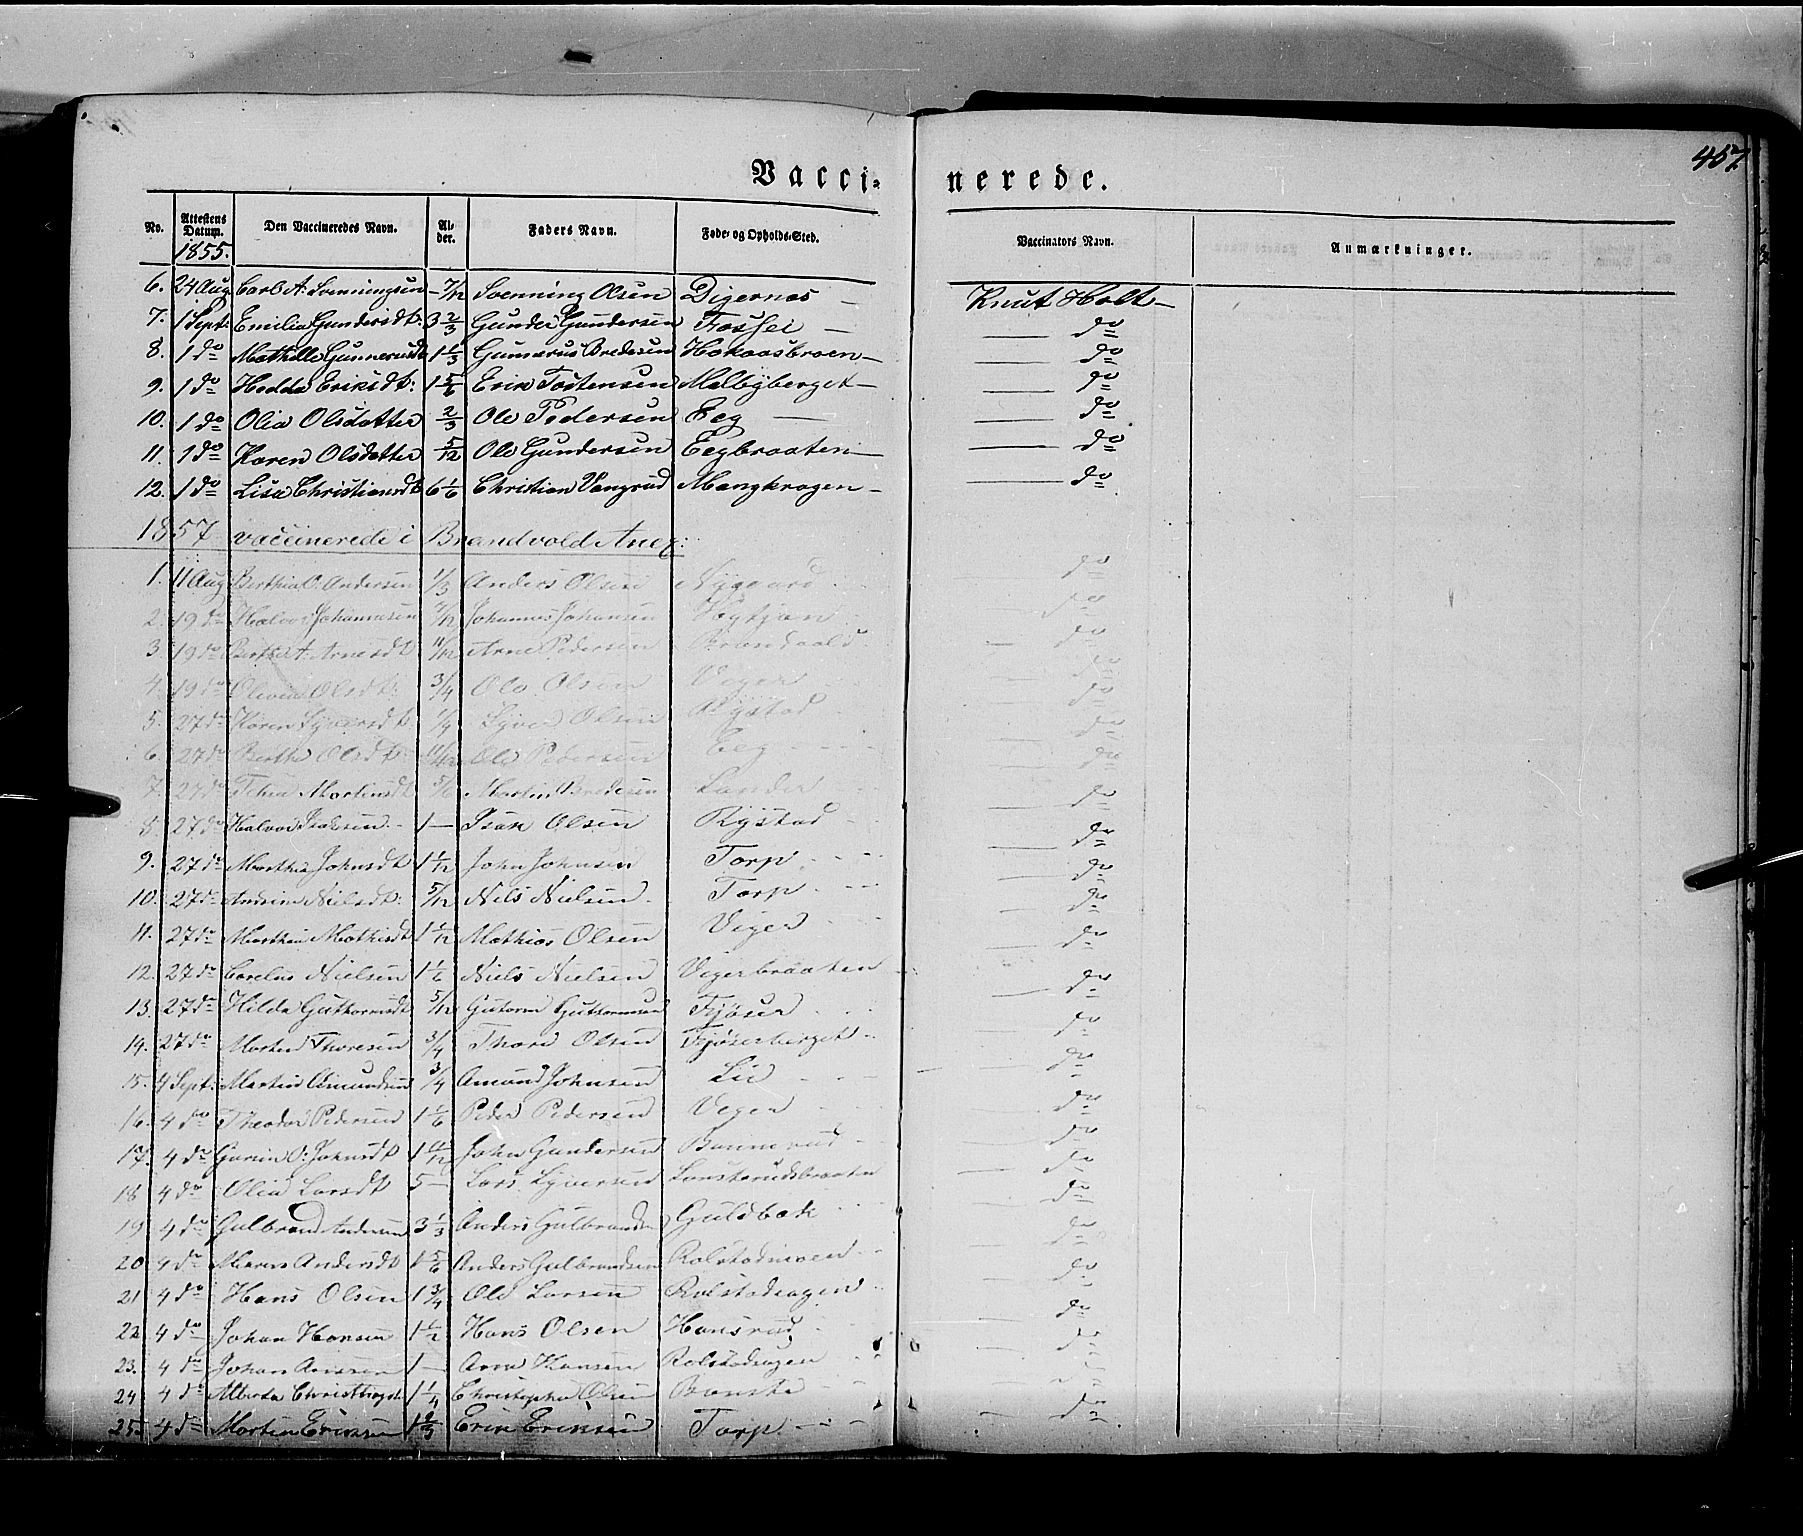 457
Vacci- nerede.
No. Attestens Datum. Den Vaccineredes Navn. Al-der. Faders Navn. Føde- og Opholds-Sted. Vaccinators Navn. Anmærkninger.
1855.
6. 24 Aug Carl A: Svenningsen - 7/12 Svenning Olsen Digernæs — Knut Holt —
7. 1 Sept: Emilia Gundersdt: 3 2/3 Gunder Gundersen Fossei — — do
8. 1 do Mathilde Gunnerusdt 1 1/3 Gunnerus Bredesen Hokaasbroen — — do
9. 1 do Hedda Eriksdt: 1 5/6 Erik Tostensen Melbyberget — — do
10. 1 do Olia Olsdatter 2/3 Ole Pedersen Eeg — — do
11. 1 do Karen Olsdatter 5/12 Ole Gundersen Eegbraaten — — do
12. 1 do Lisa Christiansdt 6 1/6 Christian Vangrud Mangkrogen — — do
1857 vaccinerede i Brandvold Anex:
1. 11 Aug Berthia O. Andersen 1/3 Anders Olsen Nygaard do
2. 19 do Halvor Johannesen 7/12 Johannes Johansen do
3. 19 do Berthe A: Arnesdt 11/12 Arne Pedersen — do
4. 19 do Olivia Olsdt: 3/4 Ole Olsen Veger do
5. 27 do Karen Syversdt 1/4 Syver Olsen Rystad do
6. 27 do Berthe Olsdt 11/12 Ole Pedersen Eeg — do
7. 27 do Martinsdt 5/6 Martin Bredesen Lunder — do
8. 27 do Halvor Isaksen 1 — Isak Olsen Rystad — do
9. 27 do Marthea Johnsdt 1 1/12 John Johnsen Torp — do
10. 27 do Nielsdt: 5/12 Nils Nielsen Torp — do
11. 27 do Marthea Mathisdt 1 1/12 Mathias Olsen Viger — do
12. 27 do Carelius Nielsen 1 1/6 Niels Nielsen Vigerbraaten — do
13. 27 do Hilda Guthormsdt 5/12 Gutorm Guttormsen Fjöser — do
14. 27 do Morten Thoresen 3/4 Thore Olsen Fjöserberget — do
15. 4 Sept: Martin Amundsen 3/4 Amund Johnsen Lie — do
16. 4 do Theodor Pedersen 1 1/6 Peder Pedersen Veger — do
17. 4 do O: Johnsdt John Gundersen — do
18 4 do Olia Larsdt 5 — Lars Syversen — do
19 4 do Gulbrand Andersen 3 1/3 Anders Gulbrandsen Guldbæk — do
20 4 do Maren Andersdt 1 5/6 Anders Gulbrandsen Rolstadmoen — do
21 4 do Hans Olsen 1 3/4 Ole Larsen Rolstadeagen — do
22 4 do Johan Hansen 1 1/2 Hans Olsen Hansrud — do
23. 4 do Johan Arnesen 1 — Arne Hansen Rolstadeagen — do
24 4 do Alberta 1 1/4 Christopher Olsen — do
25. 4 do Morten Eriksen 1 2/3 Erik Eriksen Torp — do